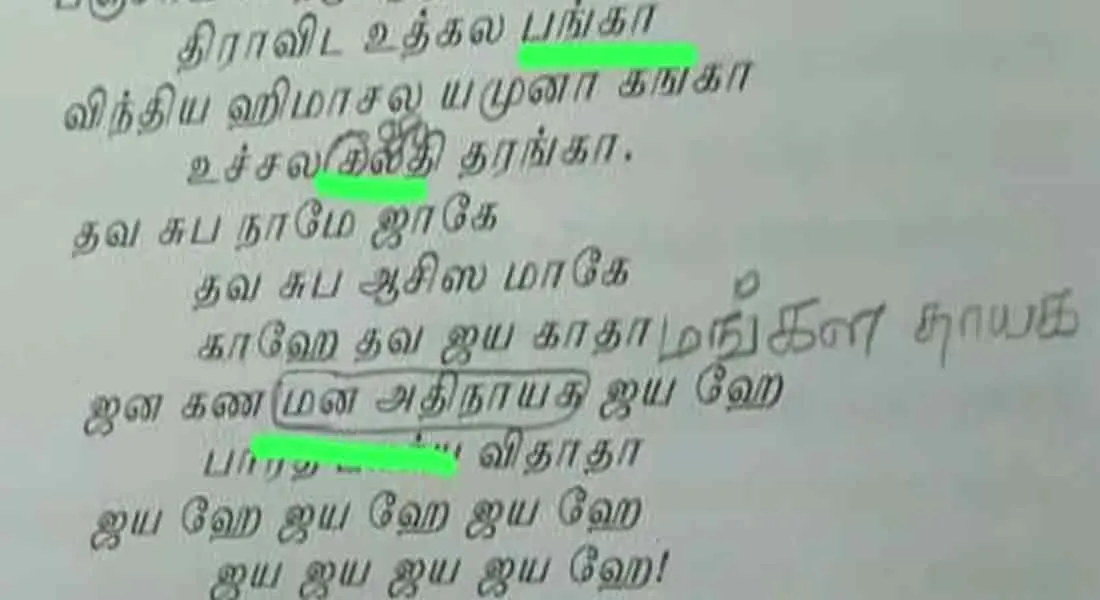 திராவிட உத்கல பங்கா
விந்திய ஹிமாசல யமுனா கங்கா
உச்சல தரங்கா.
தவ சுப நாமே ஜாகே
தவ சுப ஆசிஸ மாகே
காஹே தவ ஜய காதா மங்கள தாயக
ஜன கண மன அதிநாயத ஜய ஹே
விதாதா
ஜய ஹே ஜய ஹே ஜய ஹே
ஜய ஜய ஜய ஜய ஹே!